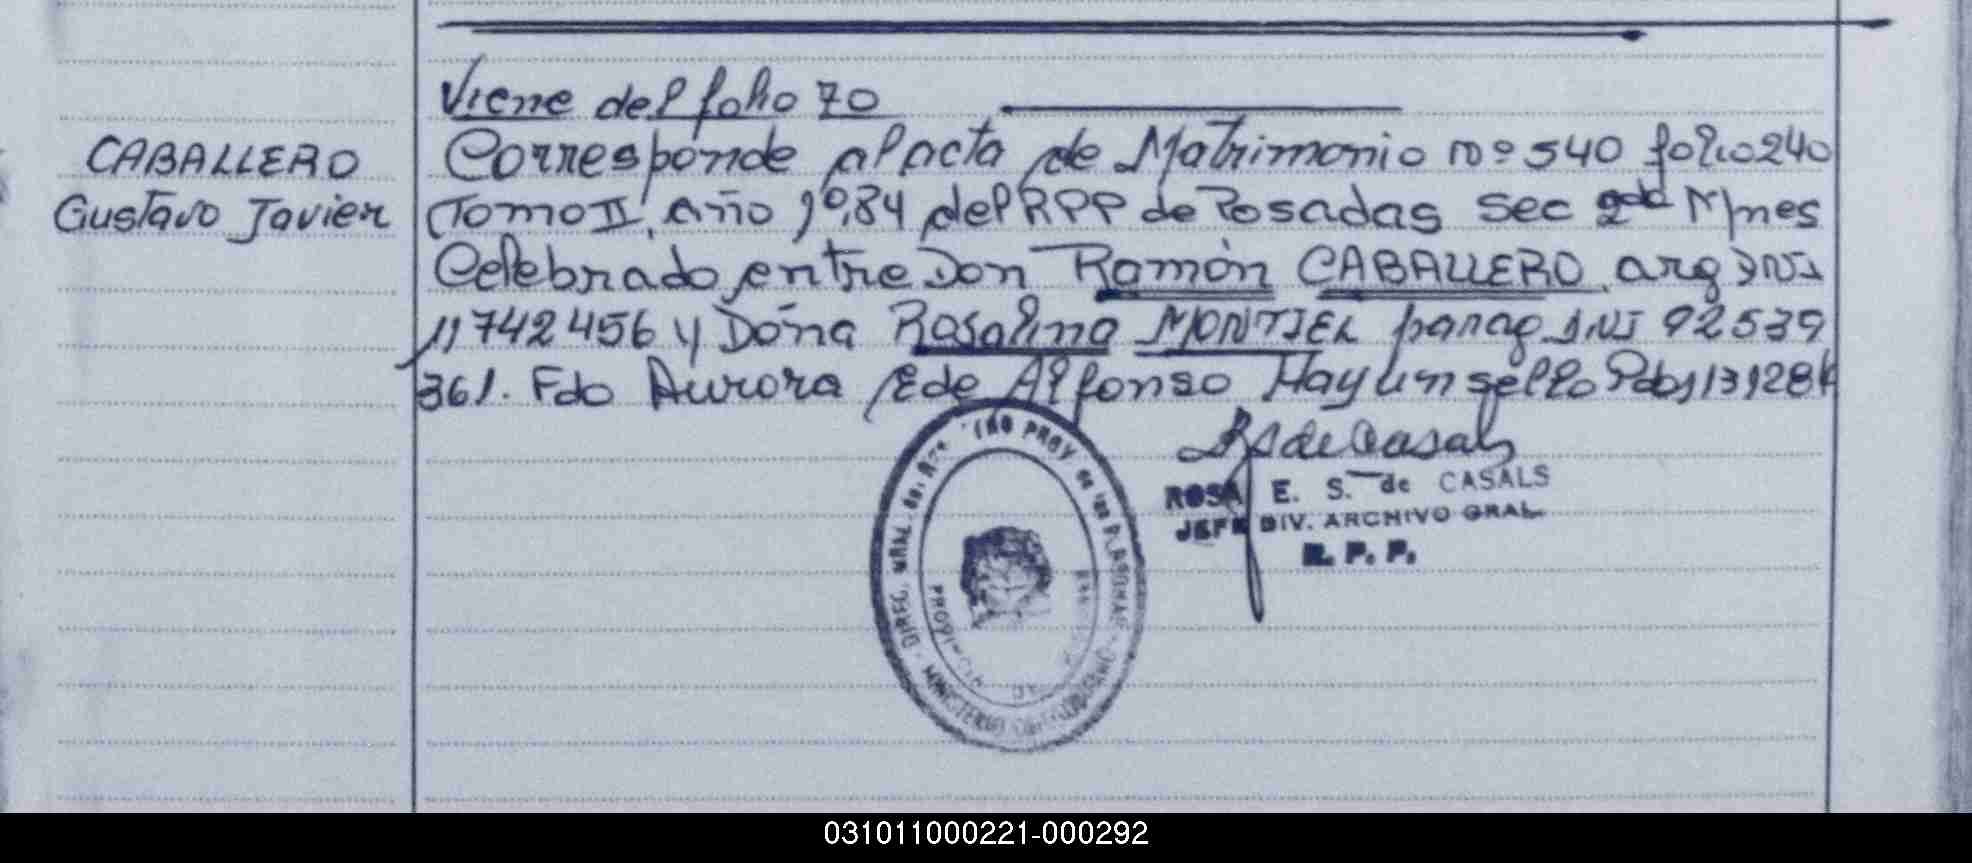 Viene del folio 70
CABALLERO
Gustavo Javier
Corresponde al acta de Matrimonio nº 540 folio 240
Tomo II, año 1984 del RPP de Posadas sec 2da M/nes
Celebrado entre Don Ramón CABALLERO arg DNI
11742456 y Doña Rosalina MONTIEL parag DNI 92539
361. Fdo Aurora E de Alfonso Hay un sello
R S de Casals
ROSA E. S. de CASALS
JEFE DIV. ARCHIVO GRAL
R. P. P.
DIREC. GRAL. PROV de las PERSONAS - MINISTERIO DE GOBIERNO
PROVINCIA DE
031011000221-000292